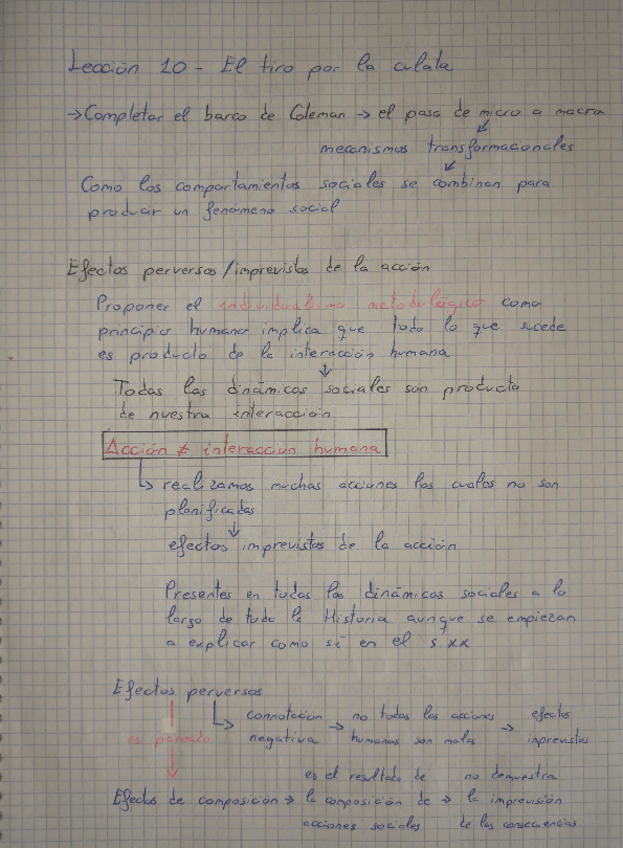 Lección 10 - El tiro por la culata
→ Completar el barco de Coleman → el paso de micro a macro
↙
mecanismos transformacionales
↙
Como los comportamientos sociales se combinan para
producir un fenómeno social
Efectos perversos/imprevistos de la acción
Proponer el individualismo metodológico como
principio humano implica que todo lo que sucede
es producto de la interacción humana
↓
Todas las dinámicas sociales son producto
de nuestra interacción
Acción ≠ interacción humana
↳ realizamos muchas acciones las cuales no son
planificadas
↓
efectos imprevistos de la acción
Presentes en todas las dinámicas sociales a lo
largo de toda la Historia aunque se empiezan
a explicar como sí en el s. XX
Efectos perversos
↳ connotación → no todas las acciones → efectos
es pasado negativa humanas son malas imprevistos
↓
es el resultado de no demuestra
Efectos de composición → la composición de → la imprevisión
acciones sociales de las consecuencias